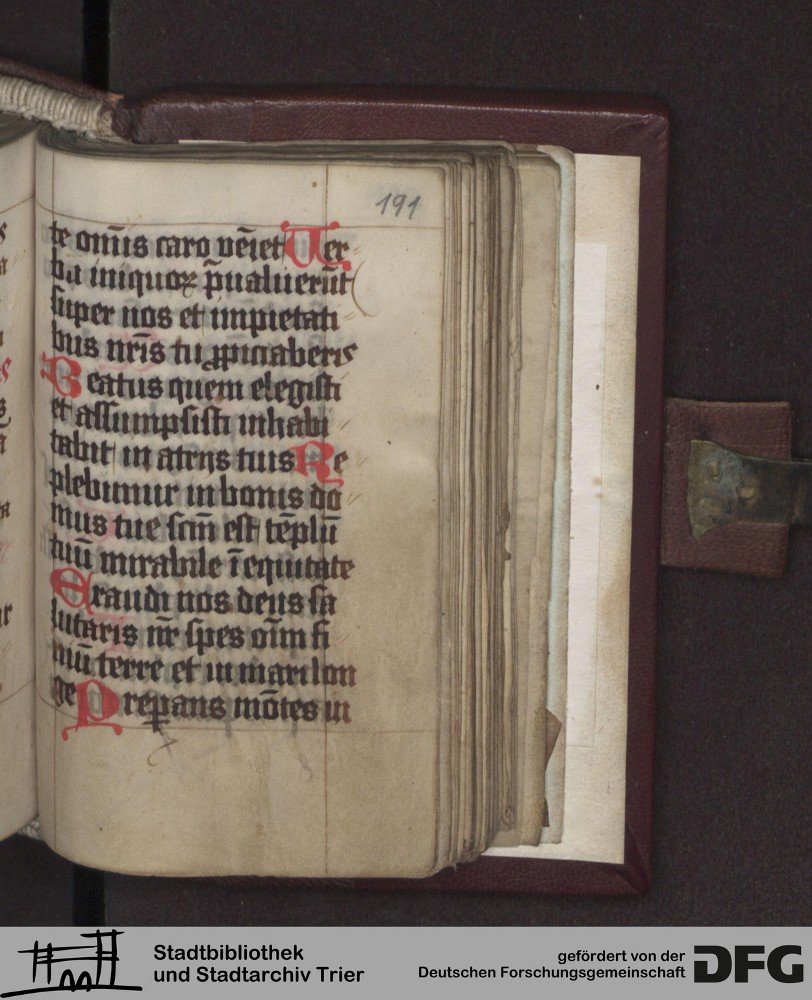 191
te om̄is caro vēiet Uer
ba iniquoꝝ p̄ualuerūt
super nos et impietati
bus nr̄is tu ꝓpiciaberis
Beatus quem elegisti
et assumpsisti inhabi
tabit in atrijs tuis Re
plebimur in bonis do
mus tue scm̄ est tēplū
tuū mirabile ī equitate
Exaudi nos deus sa
lutaris nr̄ spes oīm fi
niū terre et in mari lon
ge Preꝑans mōtes in
Stadtbibliothek
und Stadtarchiv Trier
gefördert von der
Deutschen Forschungsgemeinschaft
DFG